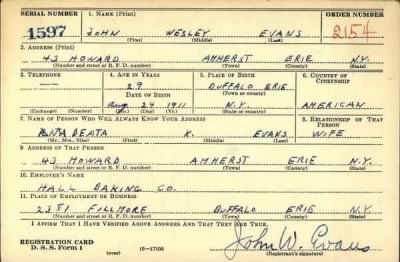 SERIAL NUMBER 1. NAME (Print) ORDER NUMBER
1597 JOHN WESLEY EVANS 2154
(First) (Middle) (Last)
2. ADDRESS (Print)
43 HOWARD AMHERST ERIE N.Y.
(Number and street or R. F. D. number) (Town) (County) (State)
3. TELEPHONE 4. AGE IN YEARS 5. PLACE OF BIRTH 6. COUNTRY OF CITIZENSHIP
29 BUFFALO ERIE
DATE OF BIRTH (Town or county)
Aug 24 1911 N.Y. AMERICAN
(Exchange) (Number) (Mo.) (Day) (Yr.) (State or country)
7. NAME OF PERSON WHO WILL ALWAYS KNOW YOUR ADDRESS 8. RELATIONSHIP OF THAT PERSON
DEATA K. EVANS WIFE
(Mr., Mrs., Miss) (First) (Middle) (Last)
9. ADDRESS OF THAT PERSON
43 HOWARD AMHERST ERIE N.Y.
(Number and street or R. F. D. number) (Town) (County) (State)
10. EMPLOYER'S NAME
HALL BAKING CO.
11. PLACE OF EMPLOYMENT OR BUSINESS
2381 FILLMORE BUFFALO ERIE N.Y.
(Number and street or R. F. D. number) (Town) (County) (State)
I AFFIRM THAT I HAVE VERIFIED ABOVE ANSWERS AND THAT THEY ARE TRUE.
REGISTRATION CARD
D. S. S. Form 1 (over) 16—17105 John W. Evans
(Registrant's signature)